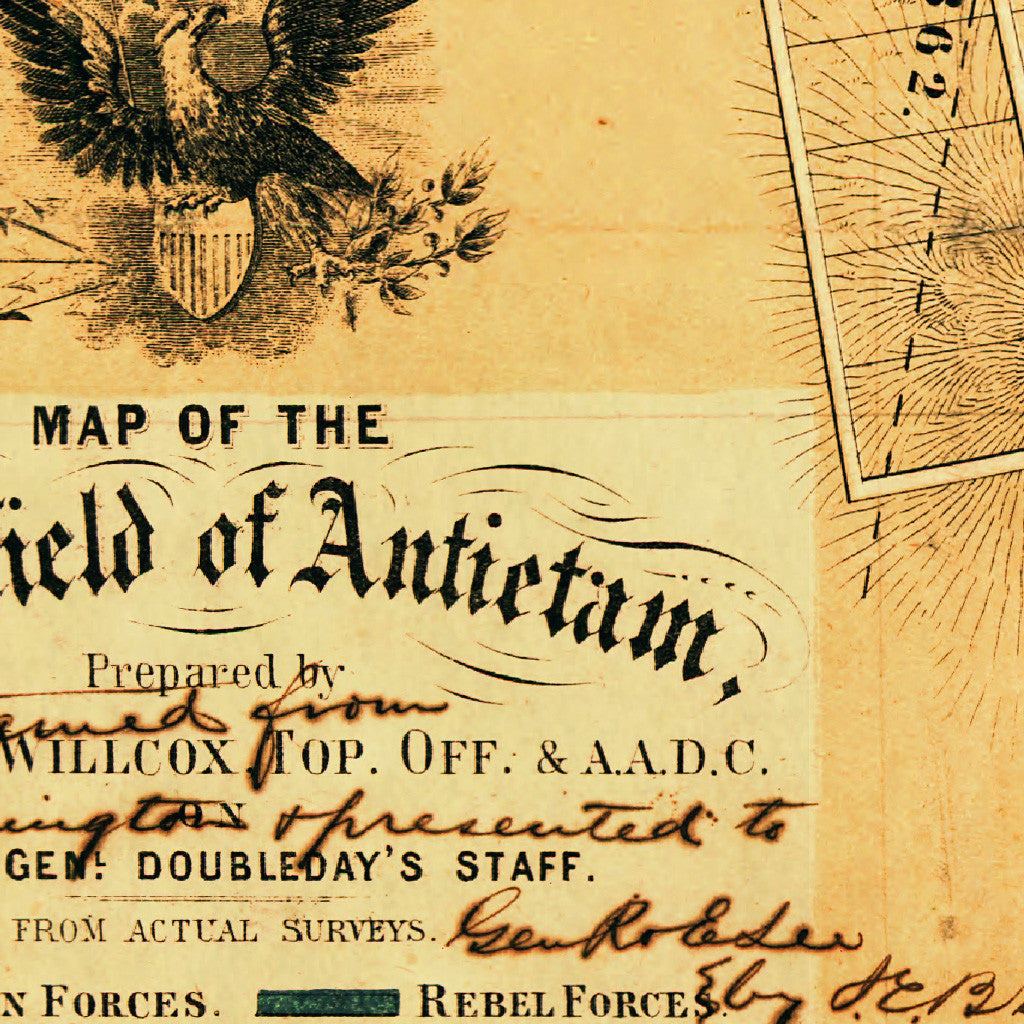 862.
MAP OF THE
field of Antietam,
Prepared by
from
WILLCOX, TOP. OFF. & A.A.D.C.
ON
& presented to
GENL. DOUBLEDAY'S STAFF.
FROM ACTUAL SURVEYS.
Gen Ro E Lee
N FORCES. REBEL FORCES.
by